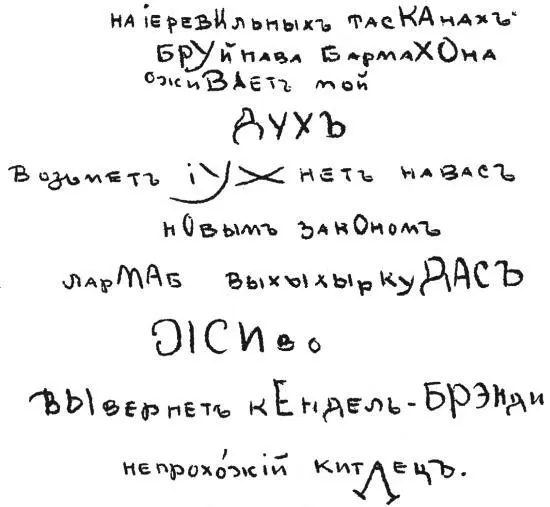 на іеревильныхъ тасКАнахъ
БРУйнава БармаХОна
оживАетъ мой
ДУХЪ
Возьметъ іУЖ нетъ навасъ
нОвымъ закОномъ
ларМАБ выхыхырку ДАСЪ
ЖИво
ВЫвернетъ кЕндель-БРЭнди
непрохо́жій китАецъ.